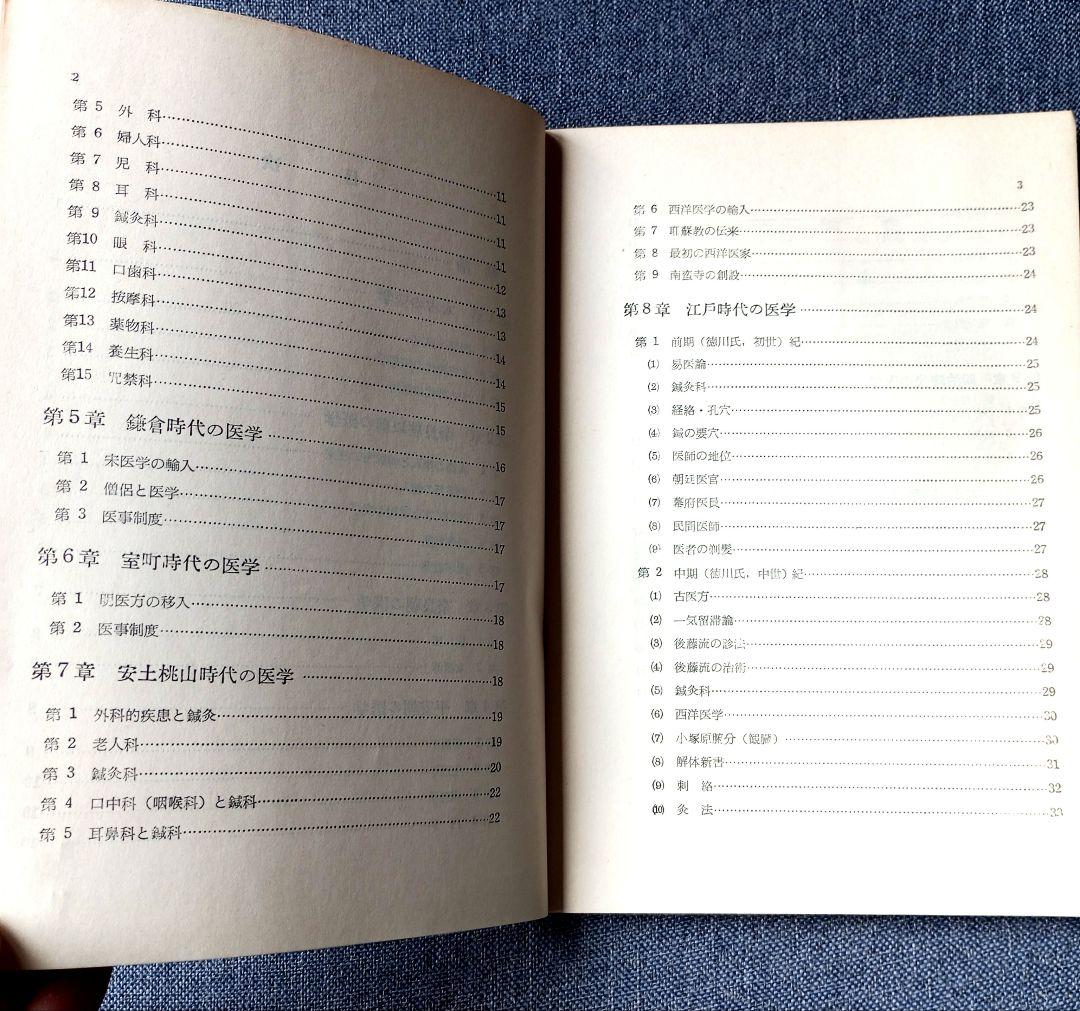 2
第5 外 科……11
第6 婦人科……11
第7 児 科……11
第8 耳 科……11
第9 鍼灸科……12
第10 眼 科……13
第11 口歯科……13
第12 按摩科……14
第13 薬物科……14
第14 養生科……15
第15 咒禁科……15
第5章 鎌倉時代の医学……16
第1 宋医学の輸入……17
第2 僧侶と医学……17
第3 医事制度……17
第6章 室町時代の医学……17
第1 明医方の移入……18
第2 医事制度……18
第7章 安土桃山時代の医学……18
第1 外科的疾患と鍼灸……19
第2 老人科……19
第3 鍼灸科……20
第4 口中科(咽喉科)と鍼科……22
第5 耳鼻科と鍼科……22
3
第6 西洋医学の輸入……23
第7 耶蘇教の伝来……23
第8 最初の西洋医家……23
第9 南蛮寺の創設……24
第8章 江戸時代の医学……24
第1 前期(徳川氏,初世)紀……24
(1) 易医論……25
(2) 鍼灸科……25
(3) 経絡・孔穴……25
(4) 鍼の要穴……26
(5) 医師の地位……26
(6) 朝廷医官……26
(7) 幕府医艮……27
(8) 民間医師……27
(9) 医者の剃髪……27
第2 中期(徳川氏,中世)紀……28
(1) 古医方……28
(2) 一気留滞論……28
(3) 後藤流の診法……29
(4) 後藤流の治術……29
(5) 鍼灸科……29
(6) 西洋医学……30
(7) 小塚原腑分(観臓)……30
(8) 解体新書……31
(9) 刺 絡……32
(10) 灸 法……33